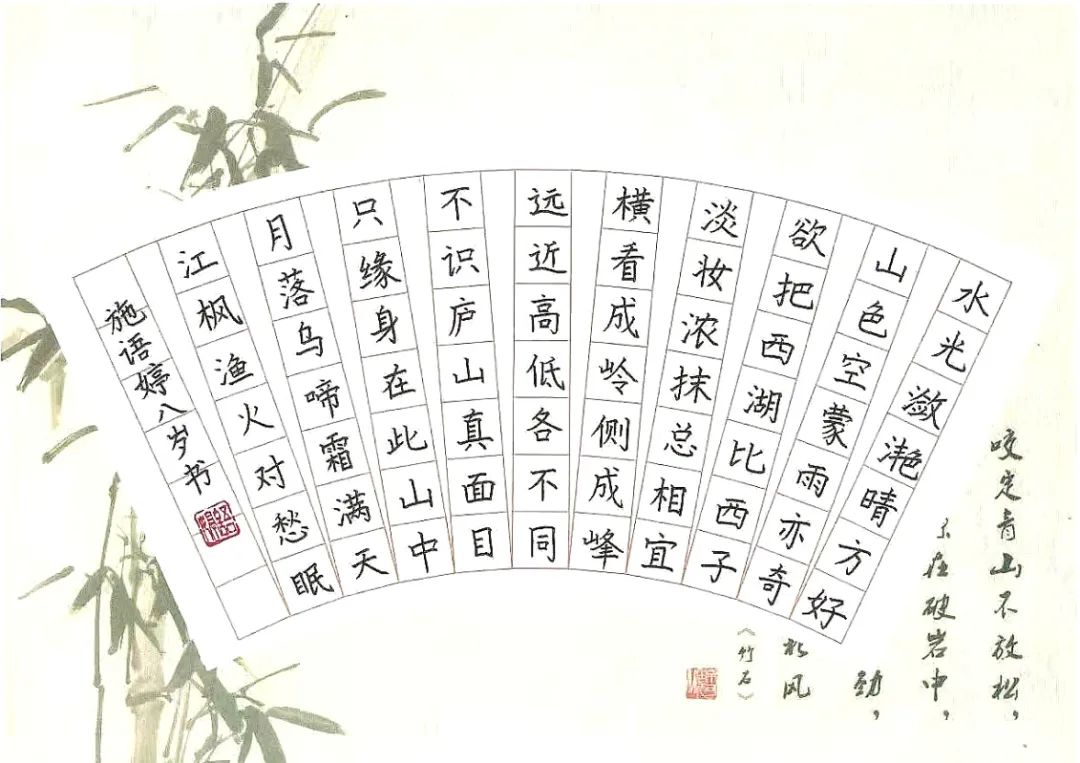 水光潋滟晴方好
山色空蒙雨亦奇
欲把西湖比西子
淡妆浓抹总相宜
横看成岭侧成峰
远近高低各不同
不识庐山真面目
只缘身在此山中
月落乌啼霜满天
江枫渔火对愁眠
施语婷八岁书
咬定青山不放松，
在破岩中，
劲，
风
《竹石》